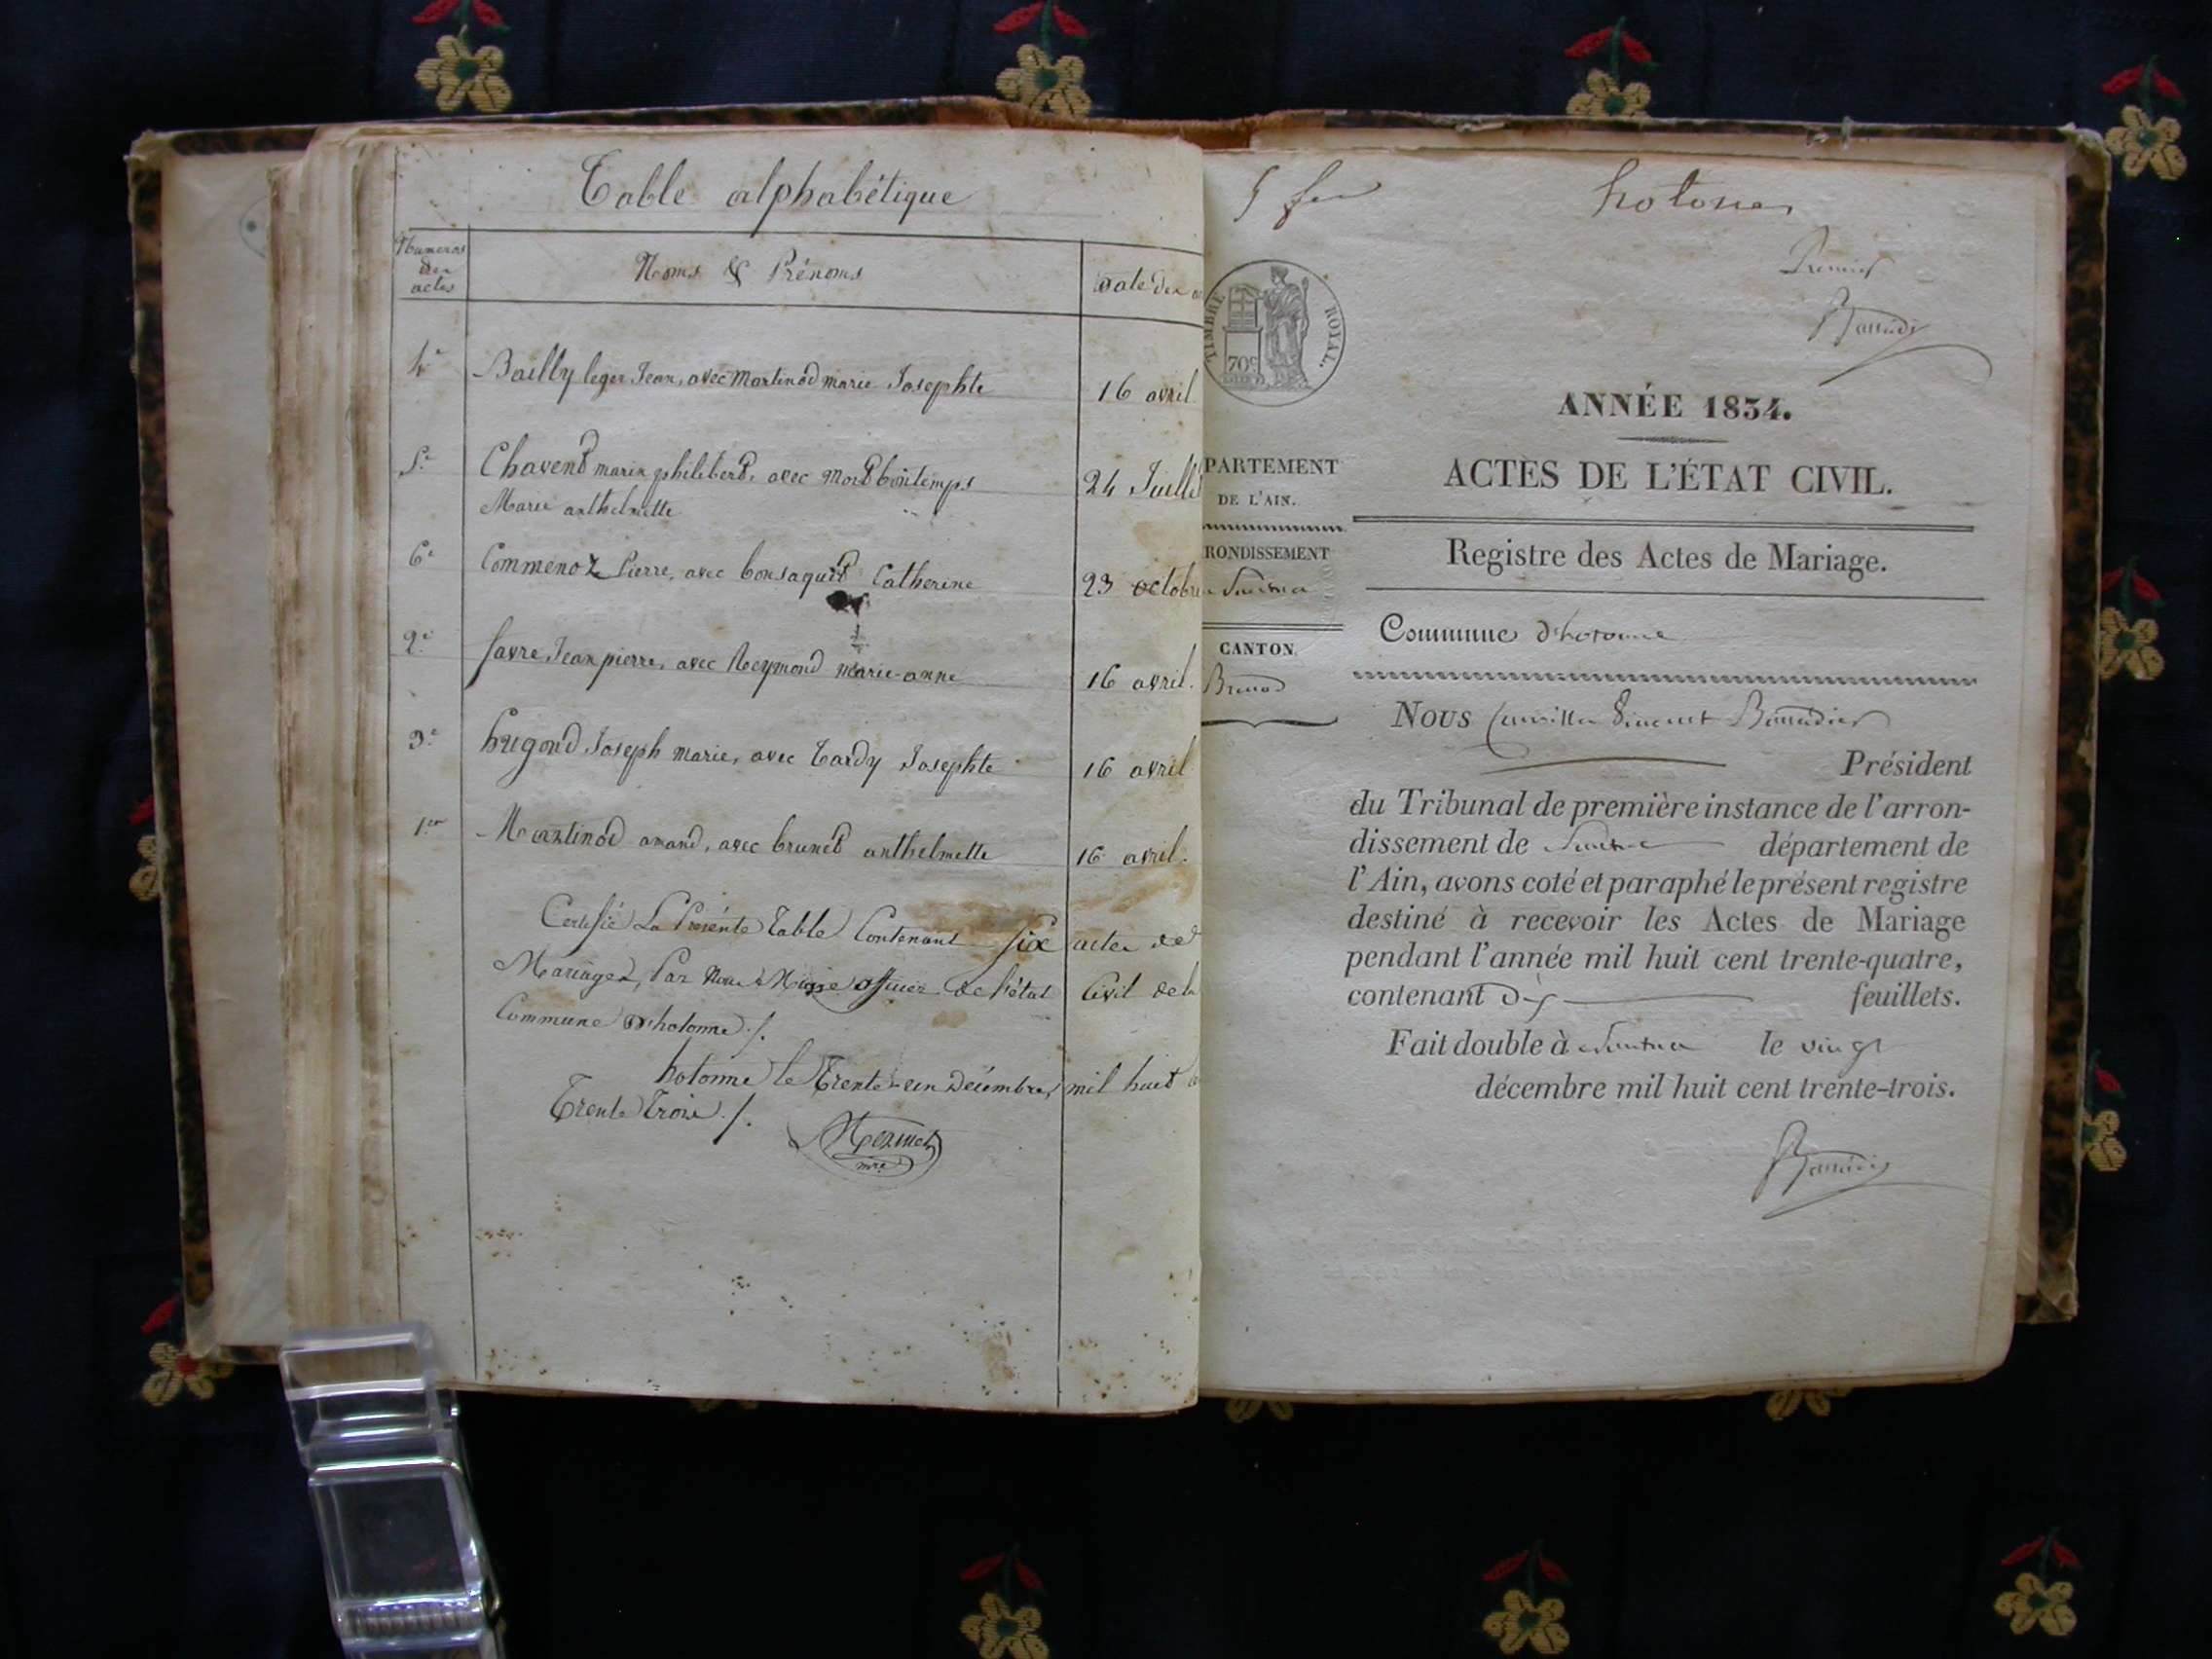 Table alphabétique
Numeros
des
actes
Noms & Prénoms
Date des
4e
Bailly leger Jean, avec Martinod marie Josephte
16 avril.
5e
Chavent marin philibert, avec Mort bontemps
Marie anthelmette
24 Juillet
6e
Commenoz Pierre, avec bonsaquet Catherine
23 octobre
2e
favre Jean pierre, avec Reymond marie-anne
16 avril.
3e
hugond Joseph marie, avec Tardy Josephte
16 avril
1er
Martinod amand, avec brunet anthelmette
16 avril.
Certifié La Présente Table Contenant Six actes de
Mariages, Par Nous Maire officier de l'état Civil de la
Commune d'hotonne ./.
hotonne le Trente-un Décembre mil huit
Trente Trois ./.
mre
5 fer
hotonnes
Premier
TIMBRE ROYAL.
70c
ANNÉE 1834.
ACTES DE L'ÉTAT CIVIL.
PARTEMENT
DE L'AIN.
Registre des Actes de Mariage.
RONDISSEMENT
Nantua
Commune d'hotonne
CANTON
Brenod
Nous Camille Vincent
Président
du Tribunal de première instance de l'arron-
dissement de Nantua département de
l'Ain, avons coté et paraphé le présent registre
destiné à recevoir les Actes de Mariage
pendant l'année mil huit cent trente-quatre,
contenant feuillets.
Fait double à Nantua le vingt
décembre mil huit cent trente-trois.